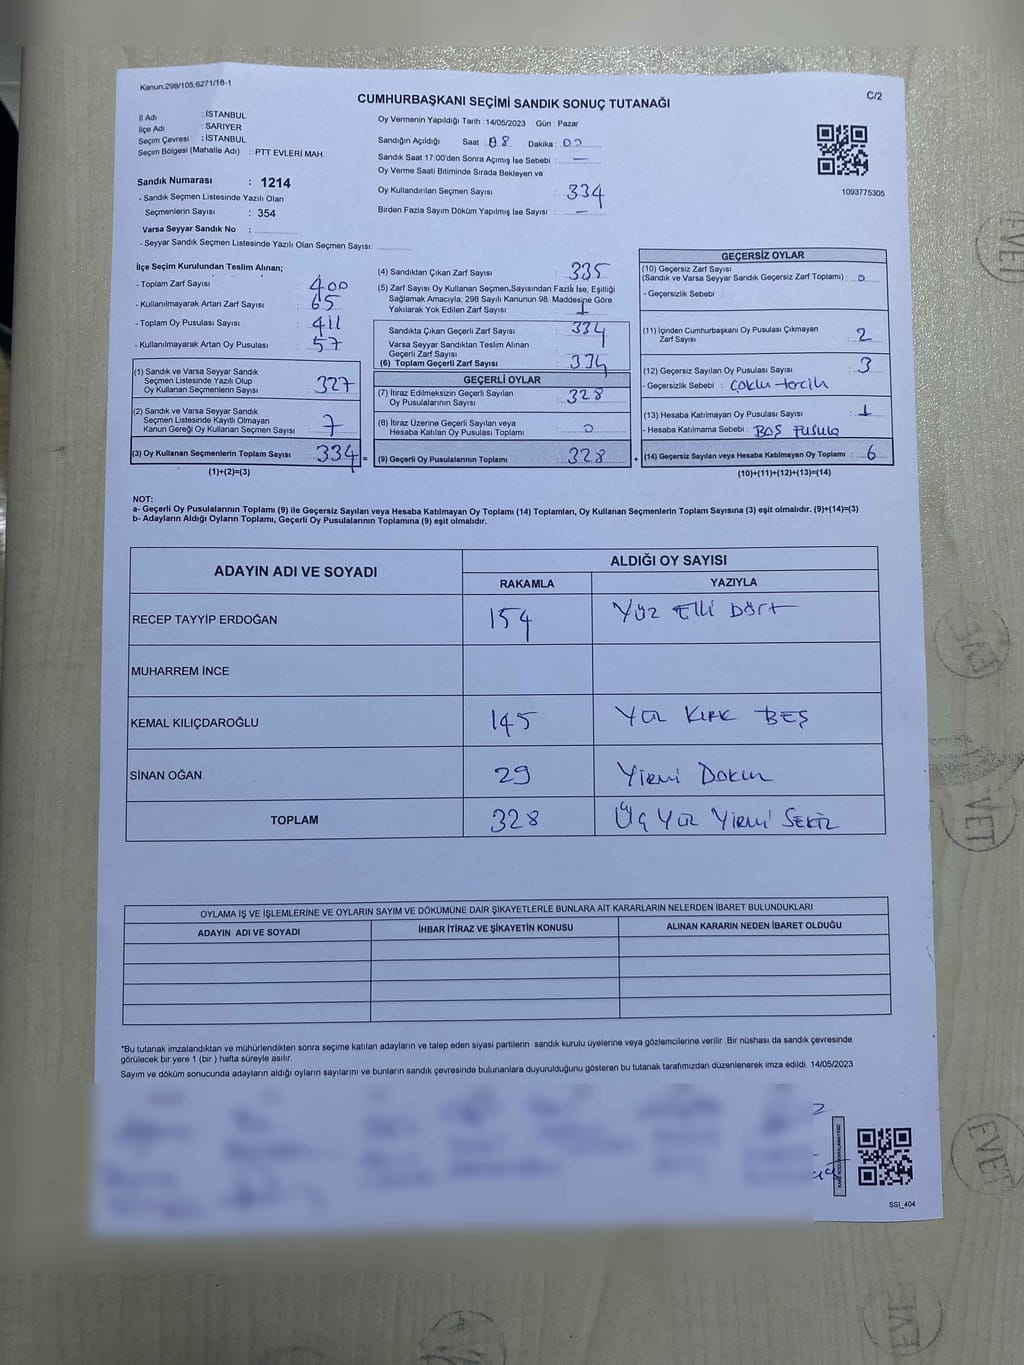 Kanun:298/105;6271/16-1
CUMHURBAŞKANI SEÇİMİ SANDIK SONUÇ TUTANAĞI
C/2
İl Adı : İSTANBUL
İlçe Adı : SARIYER
Seçim Çevresi : İSTANBUL
Seçim Bölgesi (Mahalle Adı) : PTT EVLERİ MAH.
Sandık Numarası : 1214
- Sandık Seçmen Listesinde Yazılı Olan
Seçmenlerin Sayısı : 354
Varsa Seyyar Sandık No :
- Seyyar Sandık Seçmen Listesinde Yazılı Olan Seçmen Sayısı:
Oy Vermenin Yapıldığı Tarih : 14/05/2023 Gün : Pazar
Sandığın Açıldığı Saat : 08 Dakika : 00
Sandık Saat 17:00'den Sonra Açımış İse Sebebi : —
Oy Verme Saati Bitiminde Sırada Bekleyen ve
Oy Kullandırılan Seçmen Sayısı : 334
Birden Fazla Sayım Döküm Yapılmış İse Sayısı : —
1093775305
İlçe Seçim Kurulundan Teslim Alınan;
- Toplam Zarf Sayısı : 400
- Kullanılmayarak Artan Zarf Sayısı : 65
- Toplam Oy Pusulası Sayısı : 411
- Kullanılmayarak Artan Oy Pusulası : 57
(1) Sandık ve Varsa Seyyar Sandık
Seçmen Listesinde Yazılı Olup
Oy Kullanan Seçmenlerin Sayısı : 327
(2) Sandık ve Varsa Seyyar Sandık
Seçmen Listesinde Kayıtlı Olmayan
Kanun Gereği Oy Kullanan Seçmen Sayısı : 7
(3) Oy Kullanan Seçmenlerin Toplam Sayısı : 334 =
(1)+(2)=(3)
(4) Sandıktan Çıkan Zarf Sayısı : 335
(5) Zarf Sayısı Oy Kullanan Seçmen,Sayısından Fazla İse, Eşitliği
Sağlamak Amacıyla; 298 Sayılı Kanunun 98. Maddesine Göre
Yakılarak Yok Edilen Zarf Sayısı : 1
Sandıkta Çıkan Geçerli Zarf Sayısı : 334
Varsa Seyyar Sandıktan Teslim Alınan
Geçerli Zarf Sayısı
(6) Toplam Geçerli Zarf Sayısı : 334
GEÇERLİ OYLAR
(7) İtiraz Edilmeksizin Geçerli Sayılan
Oy Pusulalarının Sayısı : 328
(8) İtiraz Üzerine Geçerli Sayılan veya
Hesaba Katılan Oy Pusulası Toplamı : 0
(9) Geçerli Oy Pusulalarının Toplamı : 328 +
GEÇERSİZ OYLAR
(10) Geçersiz Zarf Sayısı
(Sandık ve Varsa Seyyar Sandık Geçersiz Zarf Toplamı) : 0
- Geçersizlik Sebebi :
(11) İçinden Cumhurbaşkanı Oy Pusulası Çıkmayan
Zarf Sayısı : 2
(12) Geçersiz Sayılan Oy Pusulası Sayısı : 3
- Geçersizlik Sebebi : çoklu tercih
(13) Hesaba Katılmayan Oy Pusulası Sayısı : 1
- Hesaba Katılmama Sebebi : BOŞ PUSULA
(14) Geçersiz Sayılan veya Hesaba Katılmayan Oy Toplamı : 6
(10)+(11)+(12)+(13)=(14)
NOT:
a- Geçerli Oy Pusulalarının Toplamı (9) ile Geçersiz Sayılan veya Hesaba Katılmayan Oy Toplamı (14) Toplamları, Oy Kullanan Seçmenlerin Toplam Sayısına (3) eşit olmalıdır. (9)+(14)=(3)
b- Adayların Aldığı Oyların Toplamı, Geçerli Oy Pusulalarının Toplamına (9) eşit olmalıdır.
ADAYIN ADI VE SOYADI ALDIĞI OY SAYISI
RAKAMLA YAZIYLA
RECEP TAYYİP ERDOĞAN 154 Yüz Elli Dört
MUHARREM İNCE
KEMAL KILIÇDAROĞLU 145 Yüz Kırk BEŞ
SİNAN OĞAN 29 Yirmi Dokuz
TOPLAM 328 Üç Yüz Yirmi Sekiz
OYLAMA İŞ VE İŞLEMLERİNE VE OYLARIN SAYIM VE DÖKÜMÜNE DAİR ŞİKAYETLERLE BUNLARA AİT KARARLARIN NELERDEN İBARET BULUNDUKLARI
ADAYIN ADI VE SOYADI İHBAR İTİRAZ VE ŞİKAYETİN KONUSU ALINAN KARARIN NEDEN İBARET OLDUĞU
*Bu tutanak imzalandıktan ve mühürlendikten sonra seçime katılan adayların ve talep eden siyasi partilerin sandık kurulu üyelerine veya gözlemcilerine verilir .Bir nüshası da sandık çevresinde
görülecek bir yere 1 (bir ) hafta süreyle asılır.
Sayım ve döküm sonucunda adayların aldığı oyların sayılarını ve bunların sandık çevresinde bulunanlara duyurulduğunu gösteren bu tutanak tarafımızdan düzenlenerek imza edildi. 14/05/2023
SSI_404
EVET
EVET
EVET
EVET
EVET